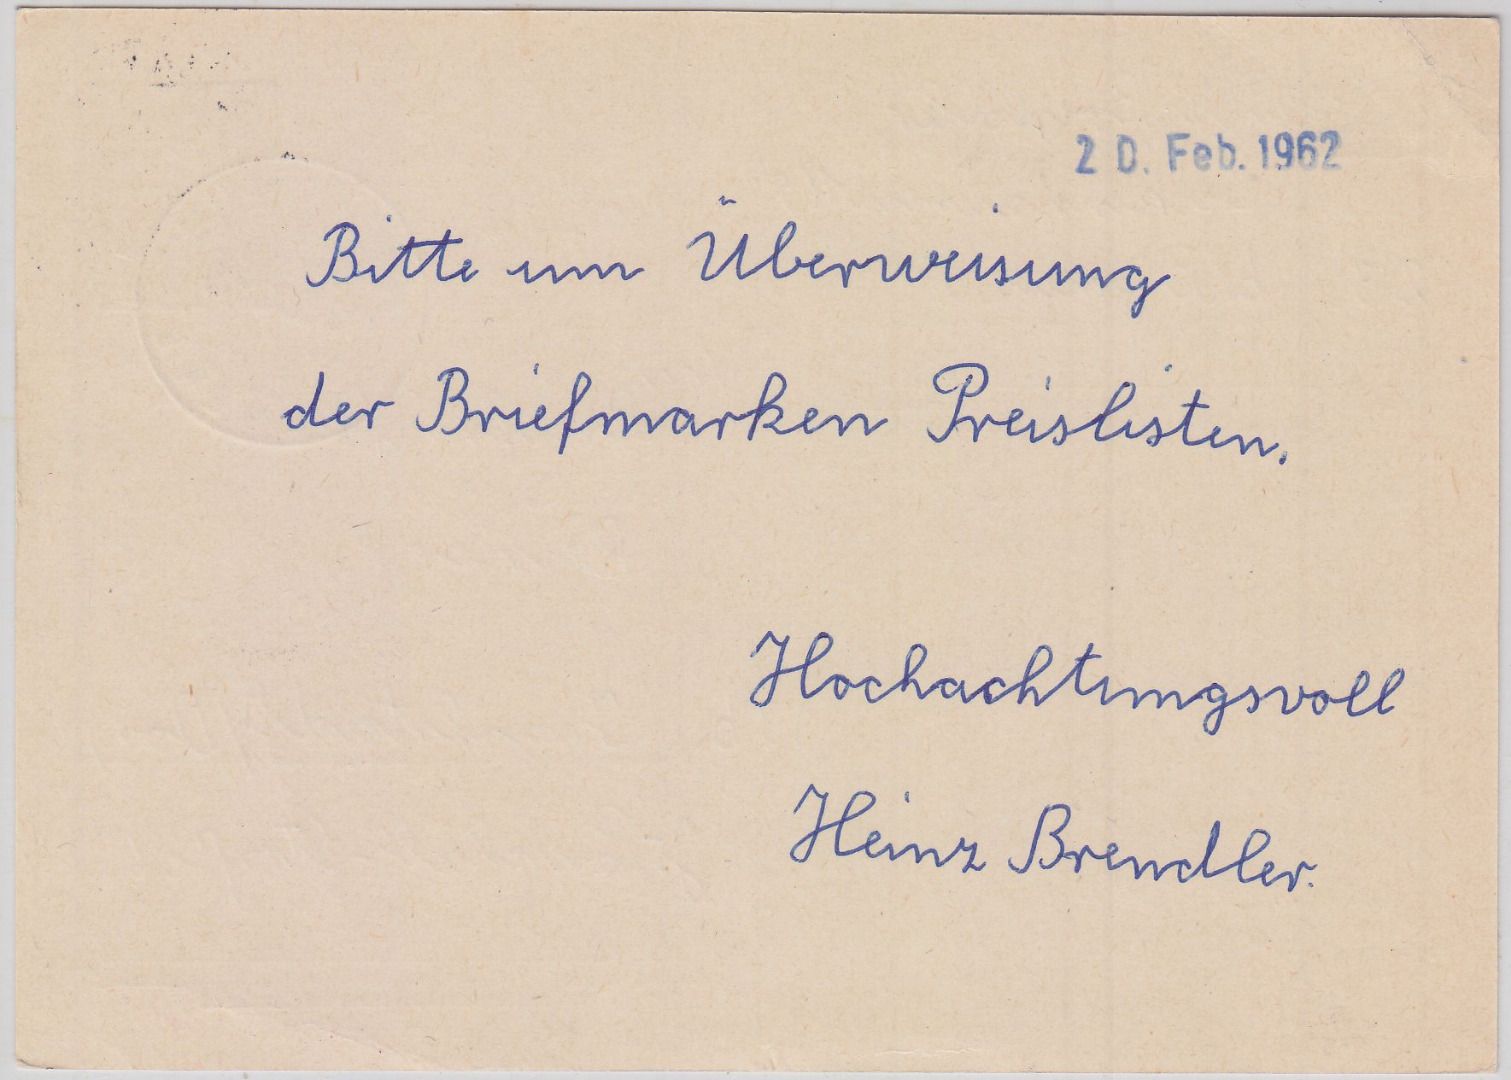 20. Feb. 1962
Bitte um Überweisung
der Briefmarken Preislisten.
Hochachtungsvoll
Heinz Brendler.